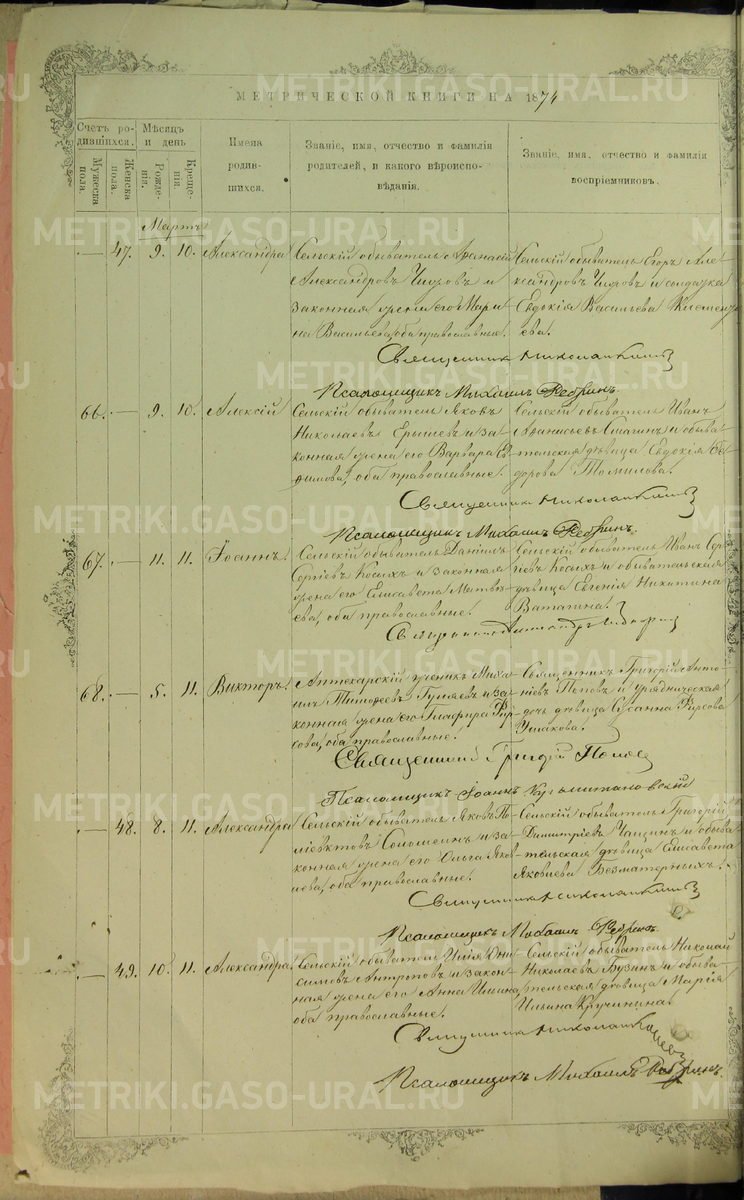 МЕТРИЧЕСКОЙ КНИГИ НА 1874
Счетъ ро-
дившихся.
Мужеска
пола.
Женска
пола.
Мѣсяцъ
и день
Рожде-
нія.
Креще-
нія.
Имена
родив-
шихся.
Званіе, имя, отчество и фамилія
родителей, и какого вѣроиспо-
вѣданія.
Званіе, имя, отчество и фамилія
воспріемниковъ.
Мартъ
47. 9. 10. Александра
Сельскій обыватель Афанасій
Александровъ и
законная жена его Мари-
на Васильева, оба православные.
Сельскій обыватель Егоръ Але-
ксандровъ и солдатка
Евдокія Васильева
ева.
Священникъ Николай
Псаломщикъ Михаилъ Ребринъ.
66. 9. 10. Алексій
Сельскій обыватель Яковъ
Николаевъ Ершевъ и за-
конная жена его Варвара Ев-
фимова, оба православные.
Сельскій обыватель Иванъ
Афанасьевъ Смагинъ и обыва-
тельская дѣвица Евдокія Ѳе-
дорова Томилова.
Священникъ Николай
Псаломщикъ Михаилъ Ребринъ.
67. 11. 11. Іоаннъ.
Сельскій обыватель Даніилъ
Сергіевъ Косыхъ и законная
жена его Елисавета Матвѣ-
ева, оба православные.
Сельскій обыватель Иванъ Сер-
гіевъ Косыхъ и обывательская
дѣвица Евгенія Никитина
Ватагина.
Священникъ Александръ
68. 5. 11. Викторъ.
Аптекарскій ученикъ Миха-
илъ Тимофеевъ Гуляевъ и за-
конная жена его Глафира Фир-
сова, оба православные.
Священникъ Григорій Анто-
ніевъ Поповъ и урядническая
дочь дѣвица Сусанна Фирсова
Ушакова.
Священникъ Григорій Поповъ
Псаломщикъ Іоаннъ
48. 8. 11. Александра
Сельскій обыватель Яковъ По-
ліевктовъ Соломеинъ и за-
конная жена его Ольга Яков-
лева, оба православные.
Сельскій обыватель Григорій
Димитріевъ Чащинъ и обыва-
тельская дѣвица Елисавета
Яковлева Безматерныхъ.
Священникъ Николай
Псаломщикъ Михаилъ Ребринъ.
49. 10. 11. Александра.
Сельскій обыватель Илія Они-
симовъ Антроповъ и закон-
ная жена его Анна Ильина,
оба православные.
Сельскій обыватель Николай
Николаевъ Бузинъ и обыва-
тельская дѣвица Марія
Ильина Кручинина.
Священникъ Николай
Псаломщикъ Михаилъ Ребринъ.
METRIKI.GASO-URAL.RU